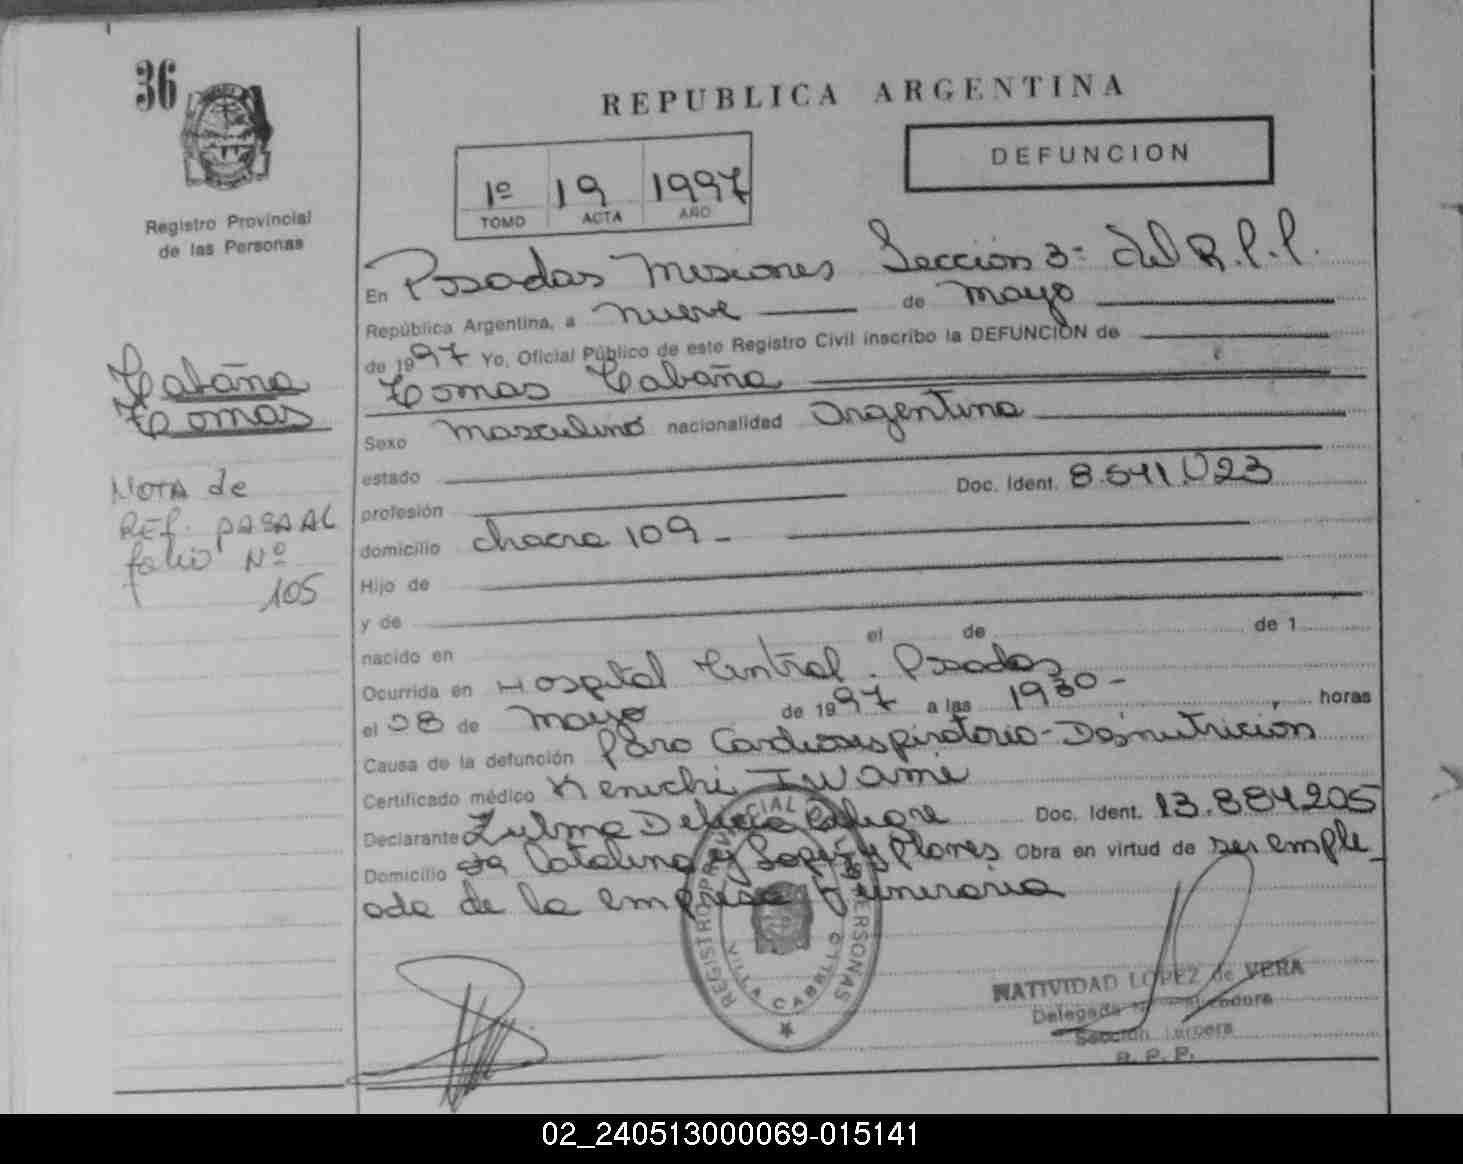 36
REPUBLICA ARGENTINA
DEFUNCION
1º 19 1997
TOMO ACTA AÑO
Registro Provincial
de las Personas
En Posadas Misiones Sección 3= del R.P.P.
República Argentina, a nueve de mayo
de 1997 Yo, Oficial Público de este Registro Civil inscribo la DEFUNCION de
Tomas Cabaña
Cabaña
Tomas
Sexo masculino nacionalidad argentina
estado
Doc. Ident. 8.541.023
profesión
NOTA de
REF. PASA AL
folio Nº
105
domicilio chacra 109 -
Hijo de
y de
nacido en el de de 1
Ocurrida en Hospital Central. Posadas
el 08 de mayo de 1997 a las 1930- horas
Causa de la defunción Paro Cardiorespiratorio - Desnutrición
Certificado médico Kenichi Iwame
Declarante Zulma Doc. Ident. 13.884.205
Domicilio Sta Catalina y Lopez y Planes Obra en virtud de ser emple
ada de la empresa funeraria
REGISTRO PROVINCIAL PERSONAS
VILLA CABELLO
NATIVIDAD LOPEZ de VERA
Delegada
Sección Tercera
R. P. P.
02_240513000069-015141